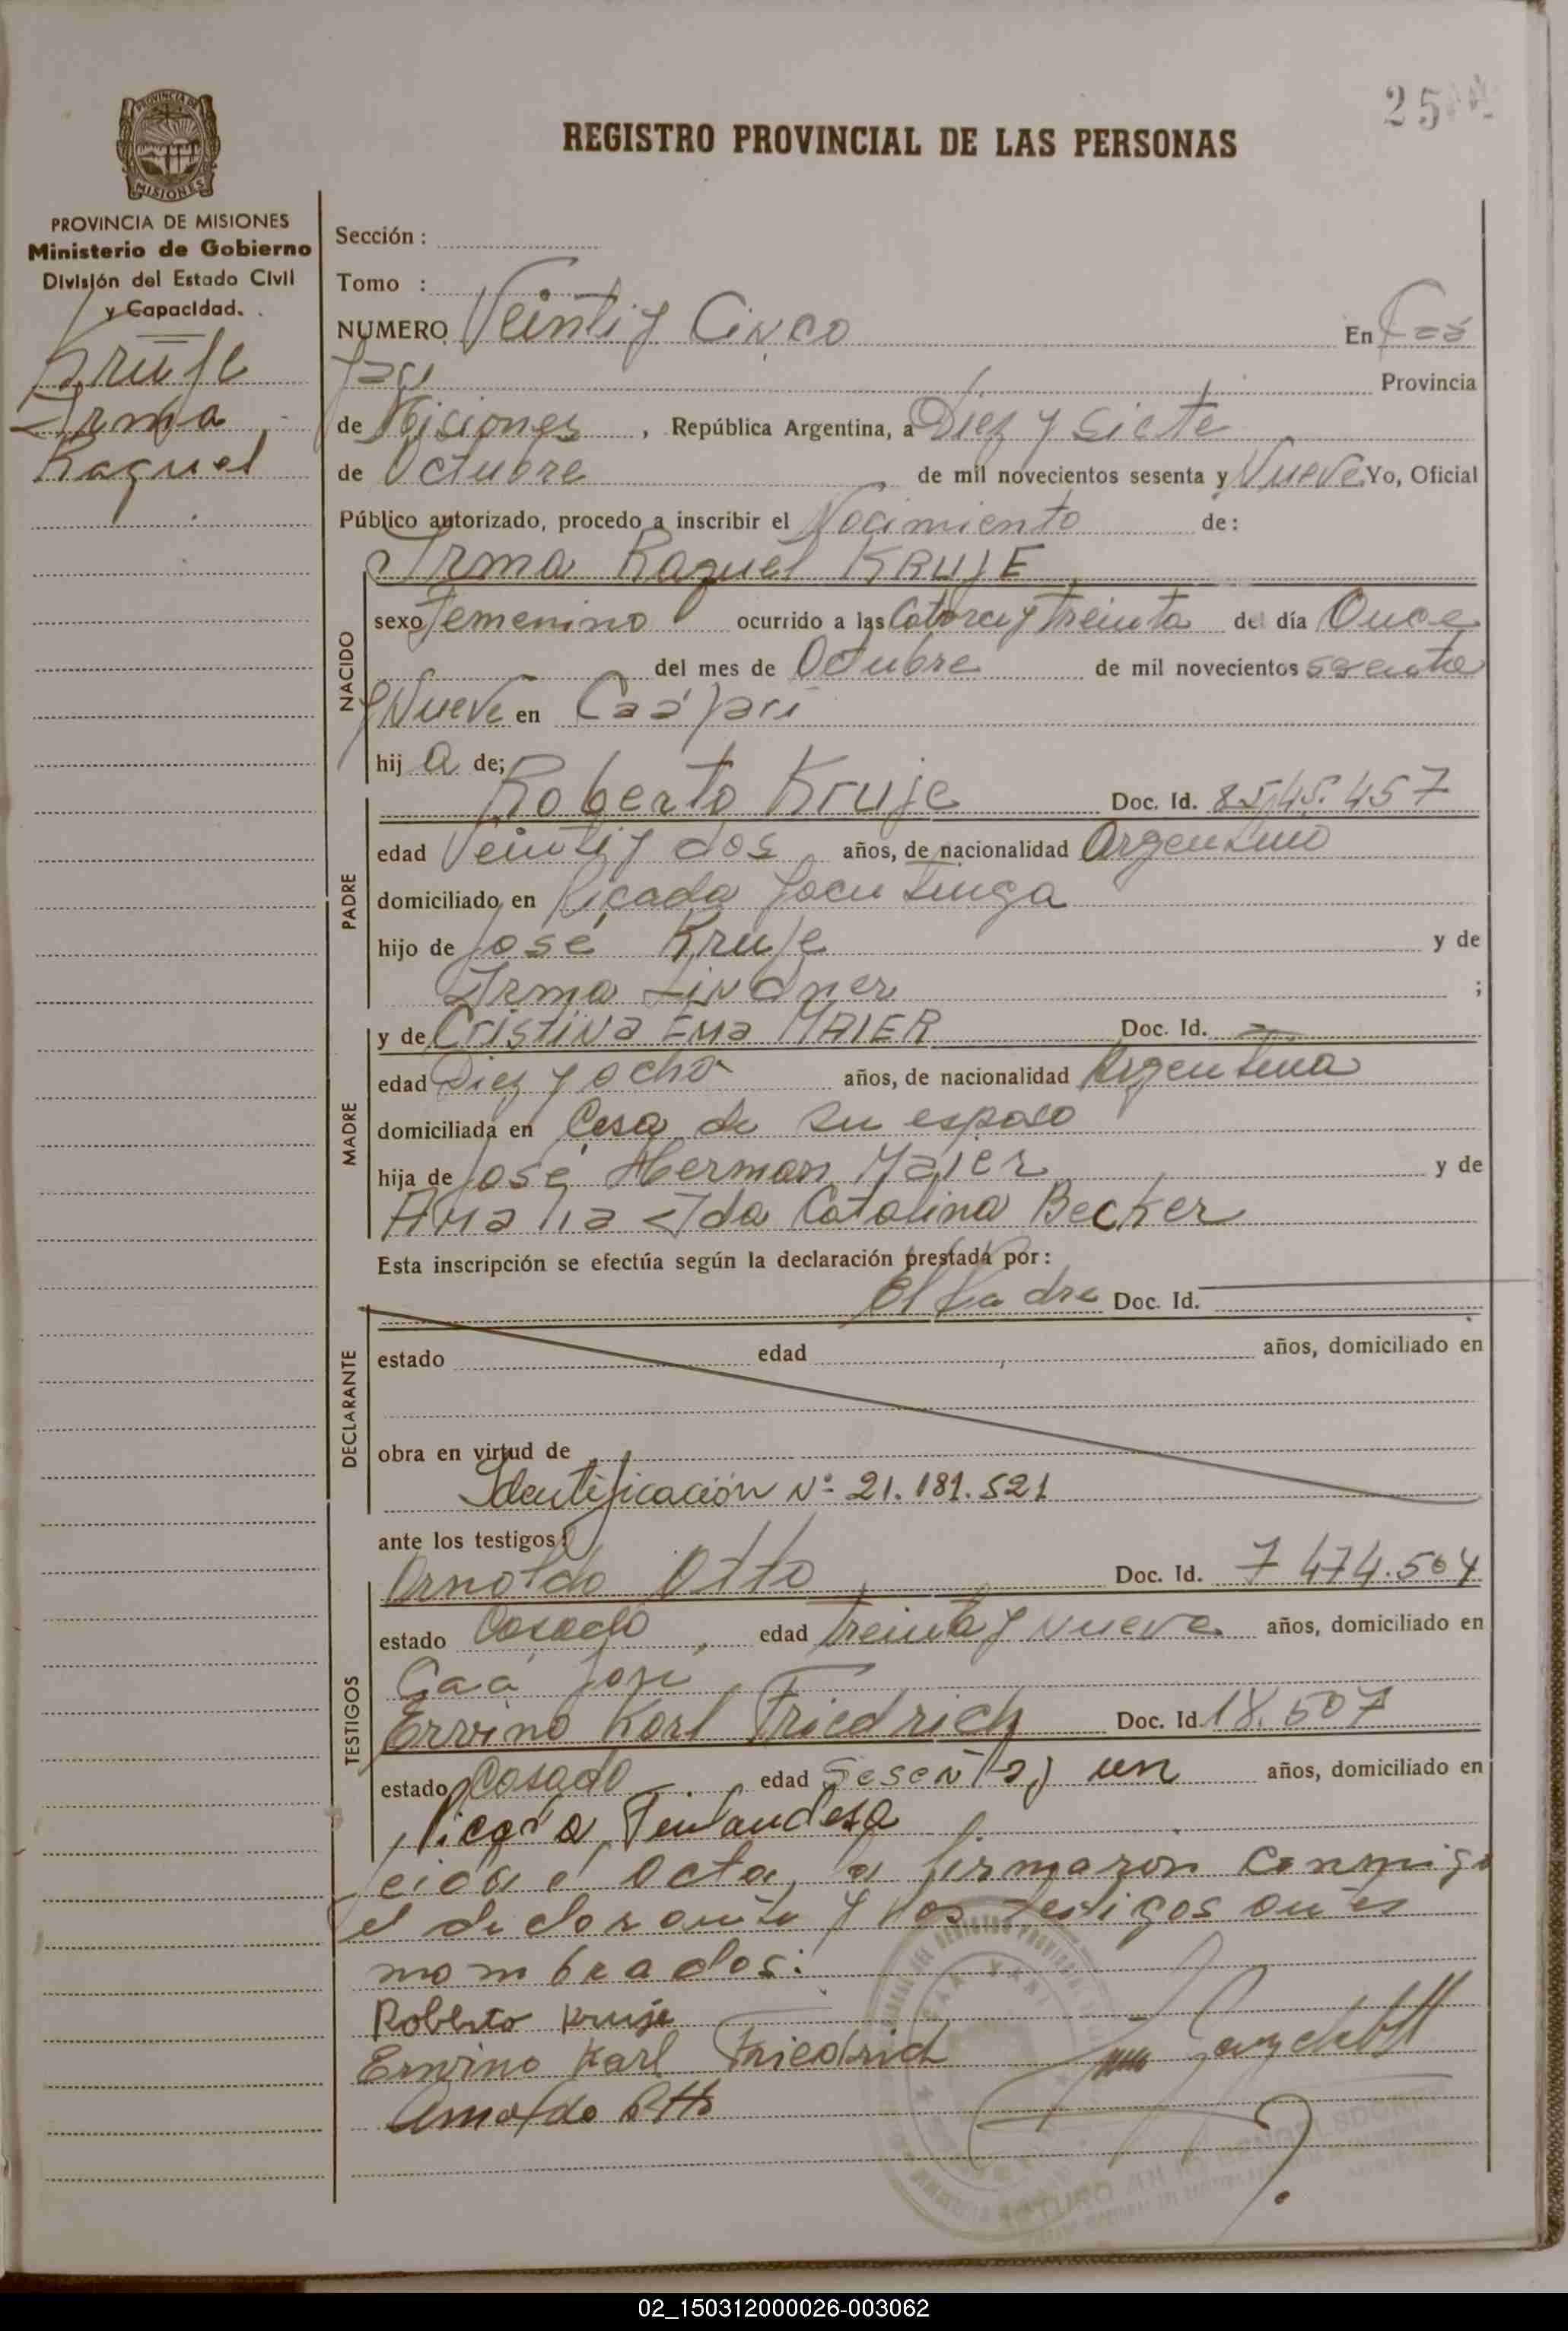 25
REGISTRO PROVINCIAL DE LAS PERSONAS
PROVINCIA DE
MISIONES
PROVINCIA DE MISIONES
Ministerio de Gobierno
División del Estado Civil
y Capacidad.
Kruje
Irma
Raquel
Sección :
Tomo :
NUMERO Veinti y Cinco En Caá
Yarí Provincia
de Misiones , República Argentina, a Diez y siete
de Octubre de mil novecientos sesenta y Nueve Yo, Oficial
Público autorizado, procedo a inscribir el Nacimiento de:
Irma Raquel KRUJE
NACIDO
sexo femenino ocurrido a las Catorce y treinta del día Once
del mes de Octubre de mil novecientos sesenta
y Nueve en Caá Yarí
hij a de;
Roberto Kruje Doc. Id. 8.545.457
PADRE
edad Veinti y dos años, de nacionalidad Argentino
domiciliado en Picada
hijo de José Kruje y de
Irma Lindner ;
y de Cristina Ema MAIER Doc. Id. —
MADRE
edad Diez y ocho años, de nacionalidad Argentina
domiciliada en Casa de su esposo
hija de José Herman Maier y de
Amalia Ida Catalina Becker
Esta inscripción se efectúa según la declaración prestada por :
El Padre Doc. Id.
DECLARANTE
estado edad años, domiciliado en
obra en virtud de
Identificación Nº 21.181.521
ante los testigos:
Arnoldo Otto Doc. Id. 7 474.504
TESTIGOS
estado Casado, edad treinta y nueve años, domiciliado en
Caá Yarí
Ervino Karl Friedrich Doc. Id. 18.507
estado Casado edad sesenta y un años, domiciliado en
Picada Finlandesa
leida el acta, la firmaron conmigo
el declarante y los testigos antes
nombrados:
Roberto Kruje
Erwino Karl Friedrich
Arnoldo Otto
02_150312000026-003062